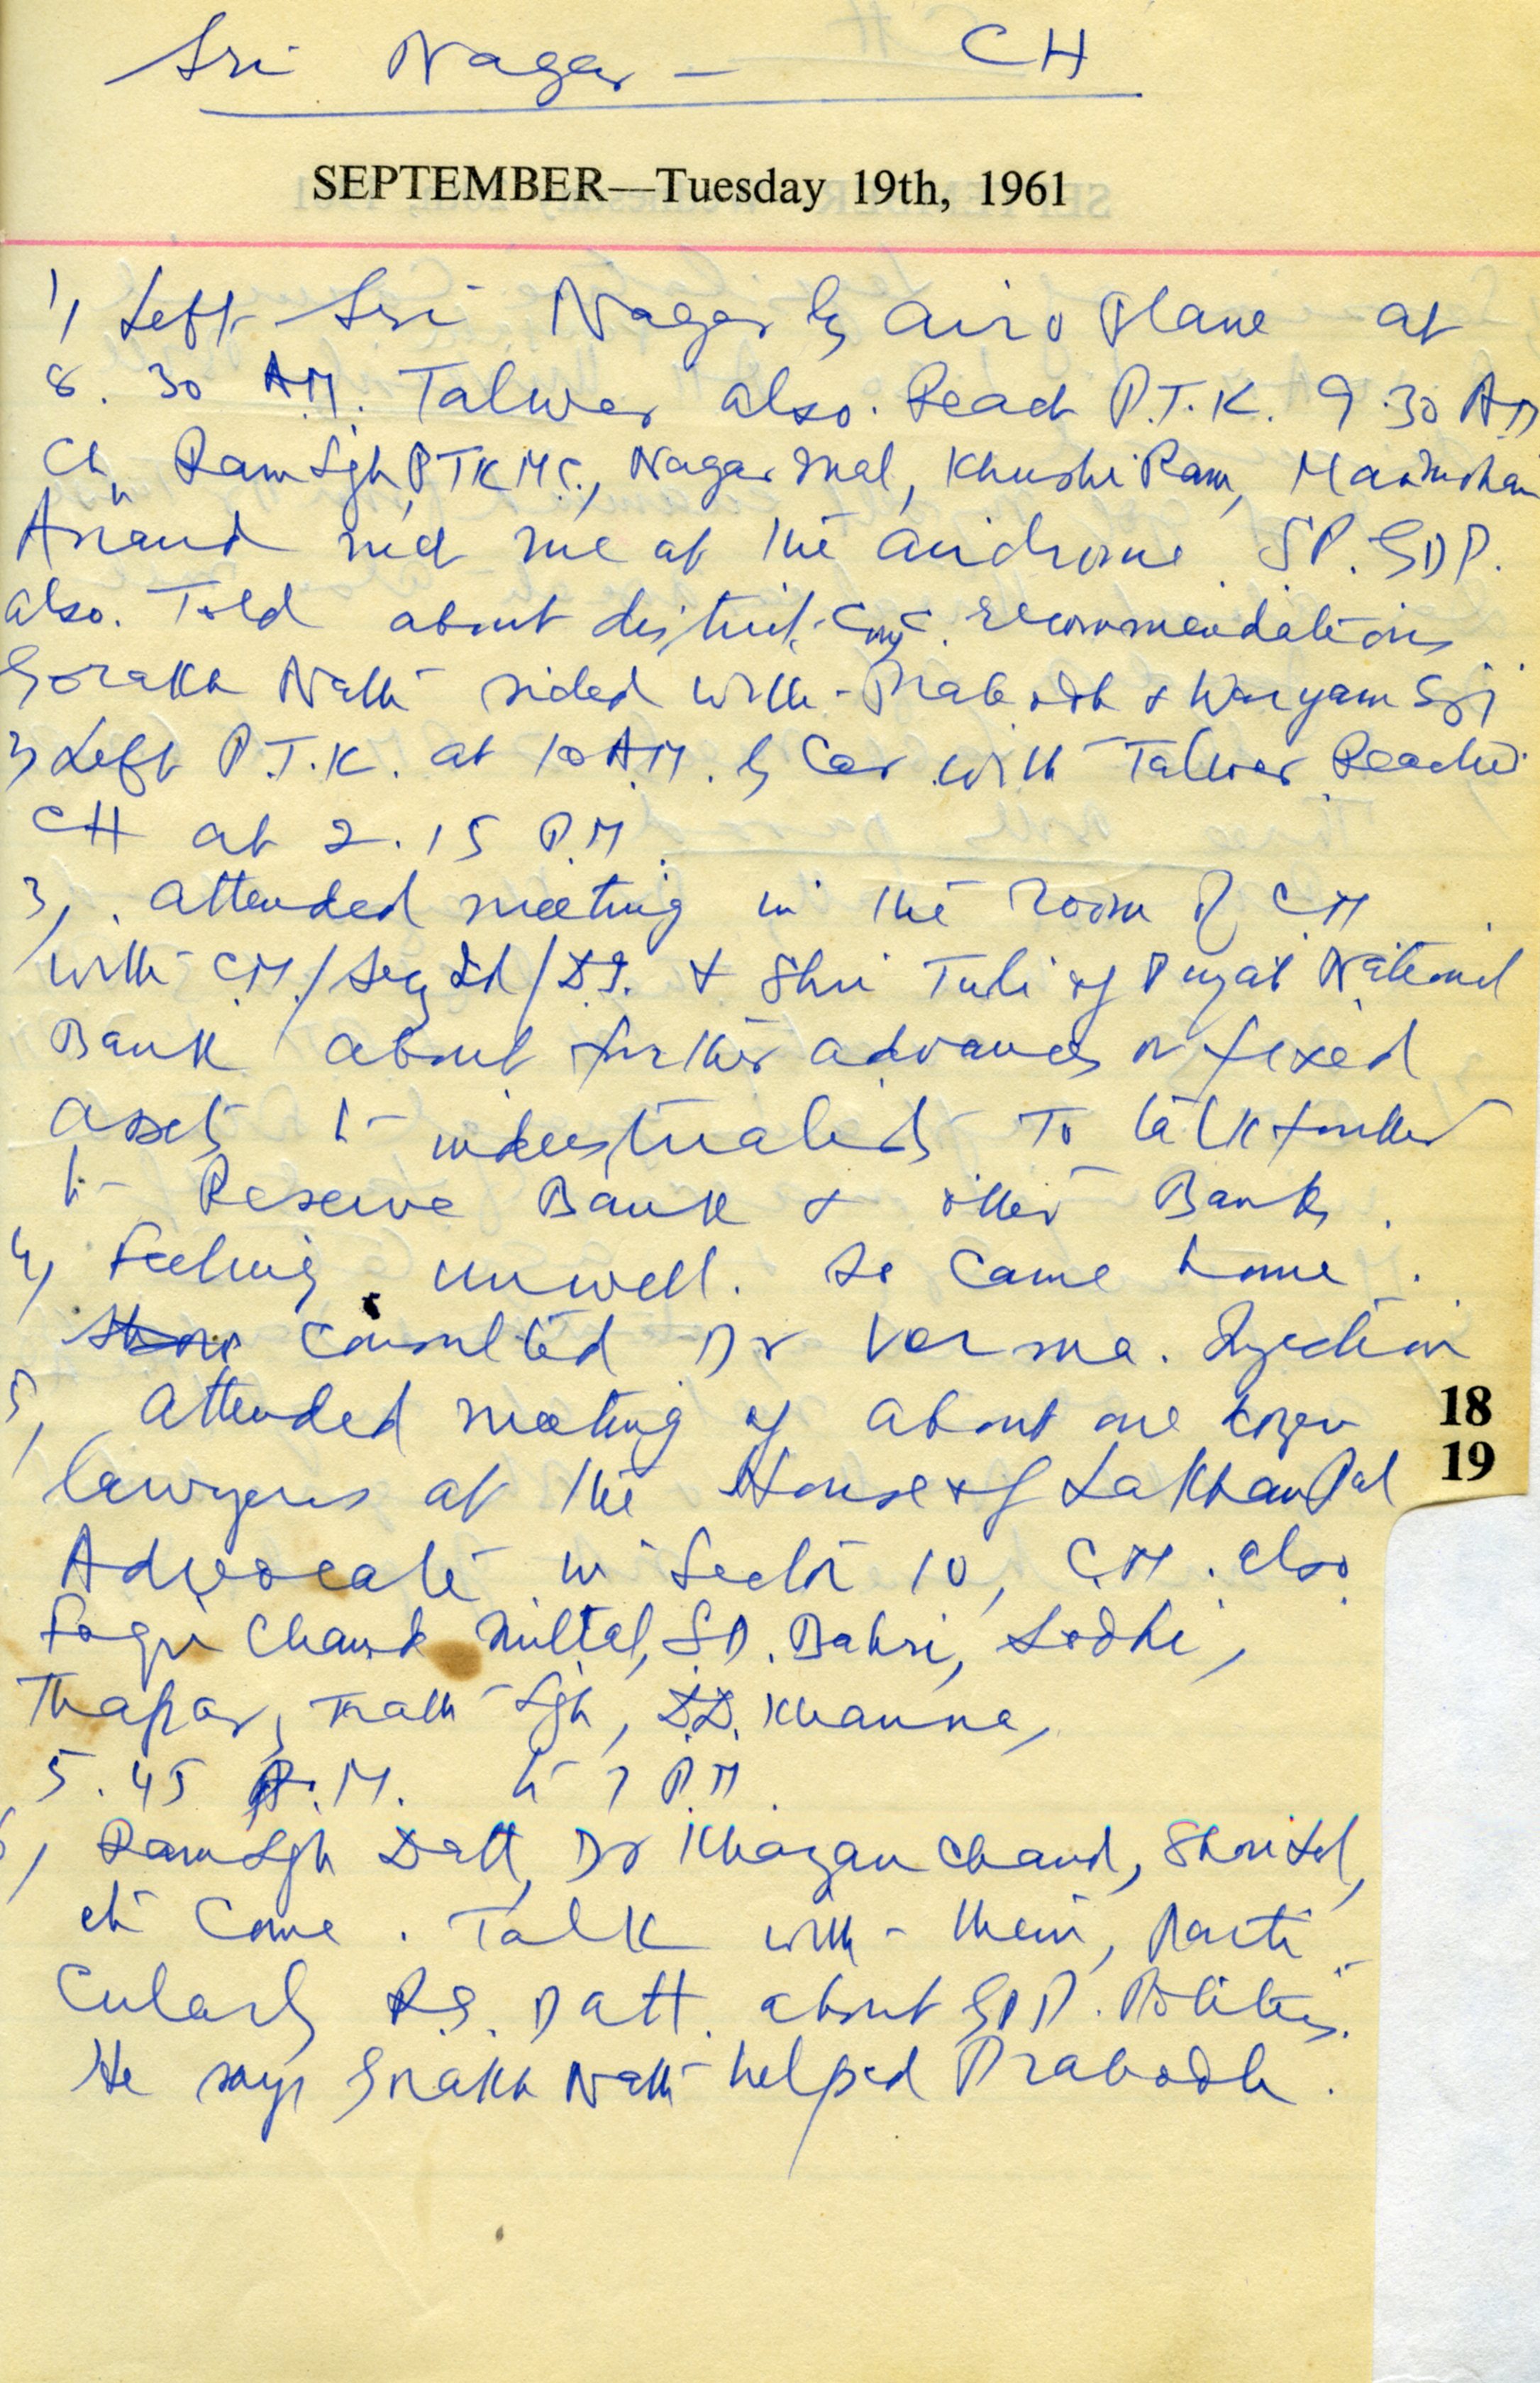 Sri Nagar — CH
SEPTEMBER—Tuesday 19th, 1961
1, Left Sri Nagar by airo plane at
8.30 A.M. Talwar also. Reach P.T.K. 9.30 AM
Ch. Ram Sgh PTK MC., Nagar Mal, Khushi Ram, Manmohan
Anand met me at the airdrome. S.P. GDP.
also. Told about district Cong. C. recommendations
Gorakh Nath sided with Prabodh & Waryam Sgh
2, Left P.T.K. at 10 A.M. by Car with Talwar Reached
CH at 2.15 P.M.
3, attended meeting in the room of CM
with C.M./Secy Id/D.I. & Shri Tuli of Punjab National
Bank about further advances on fixed
assets to industrialists To talk further
to Reserve Bank & other Banks.
4, Feeling unwell. So came home.
Consulted Dr Verma. Injection
5, attended meeting of about one dozen
lawyers at the House of Lakhan Pal
Advocate in Sector 10, C.M. also
Faqir Chand Mittal, S.D. Bahri, Sodhi,
Thapar, Nath Sgh, D.D. Khanna,
5.45 P.M. to 7 P.M.
6, Ram Sgh Datt, Dr Khazan Chand, Shri Lal,
etc Came. Talk with them, Parti-
cularly R.S. Datt. about GDP. Politics.
He says Grakh Nath helped Prabodh.
18
19